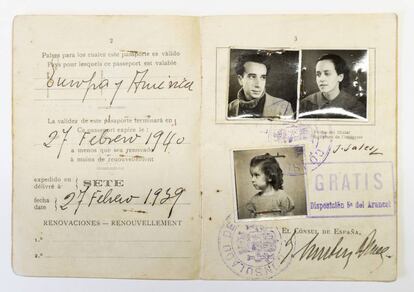 2
Países para los cuales este pasaporte es válido
Pays pour lesquels ce passeport est valable
Europa y América
La validez de este pasaporte terminará en
Ce passeport expire le:
27 Febrero 1940
a menos que sea renovado
à moins de renouvellement
expedido en
délivré à
SETE
fecha
date
27 Febrero 1939
RENOVACIONES — RENOUVELLEMENT
1.º
2.º
3
GRATIS
Disposición 5ª del Arancel
EL CÓNSUL DE ESPAÑA,